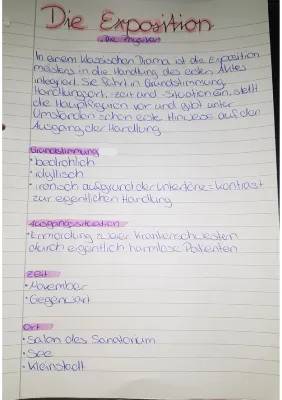 Die Exposition
Die Physiker
In einem klassischen Drama ist die Exposition
meistens in die Handlung des ersten Aktes
integriert. Sie führt in Grundstimmung,
Handlungsort, -zeit und -situation ein, stellt
die Hauptfiguren vor und gibt unter
Umständen schon erste Hinweise auf den
Ausgang der Handlung.
Grundstimmung
• bedrohlich
• idyllisch
• ironisch aufgrund der Untertöne = Kontrast
zur eigentlichen Handlung
Ausgangssituation
• Ermordung zweier Krankenschwestern
durch eigentlich harmlose Patienten
Zeit
• November
• Gegenwart
Ort
• Salon des Sanatorium
• See
• Kleinstadt